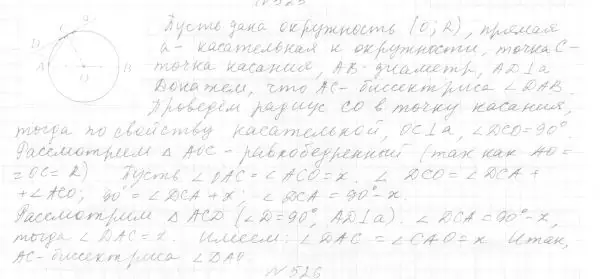 N 525
C a
D
A O B
Пусть дана окружность (O; R), прямая
a - касательная к окружности, точка C -
точка касания, AB - диаметр, AD⊥a
Докажем, что AC - биссектриса ∠DAB.
Проведём радиус CO в точку касания,
тогда по свойству касательной, OC⊥a, ∠DCO=90°.
Рассмотрим △ AOC - равнобедренный (так как AO =
= OC = R) Пусть ∠OAC = ∠ACO = x. ∠DCO = ∠DCA +
+ ∠ACO; 90° = ∠DCA + x; ∠DCA = 90° - x.
Рассмотрим △ ACD (∠D=90°, AD⊥a). ∠DCA = 90° - x,
тогда ∠DAC = x. Имеем: ∠DAC = ∠CAO = x Итак,
AC - биссектриса ∠DAB
N 526